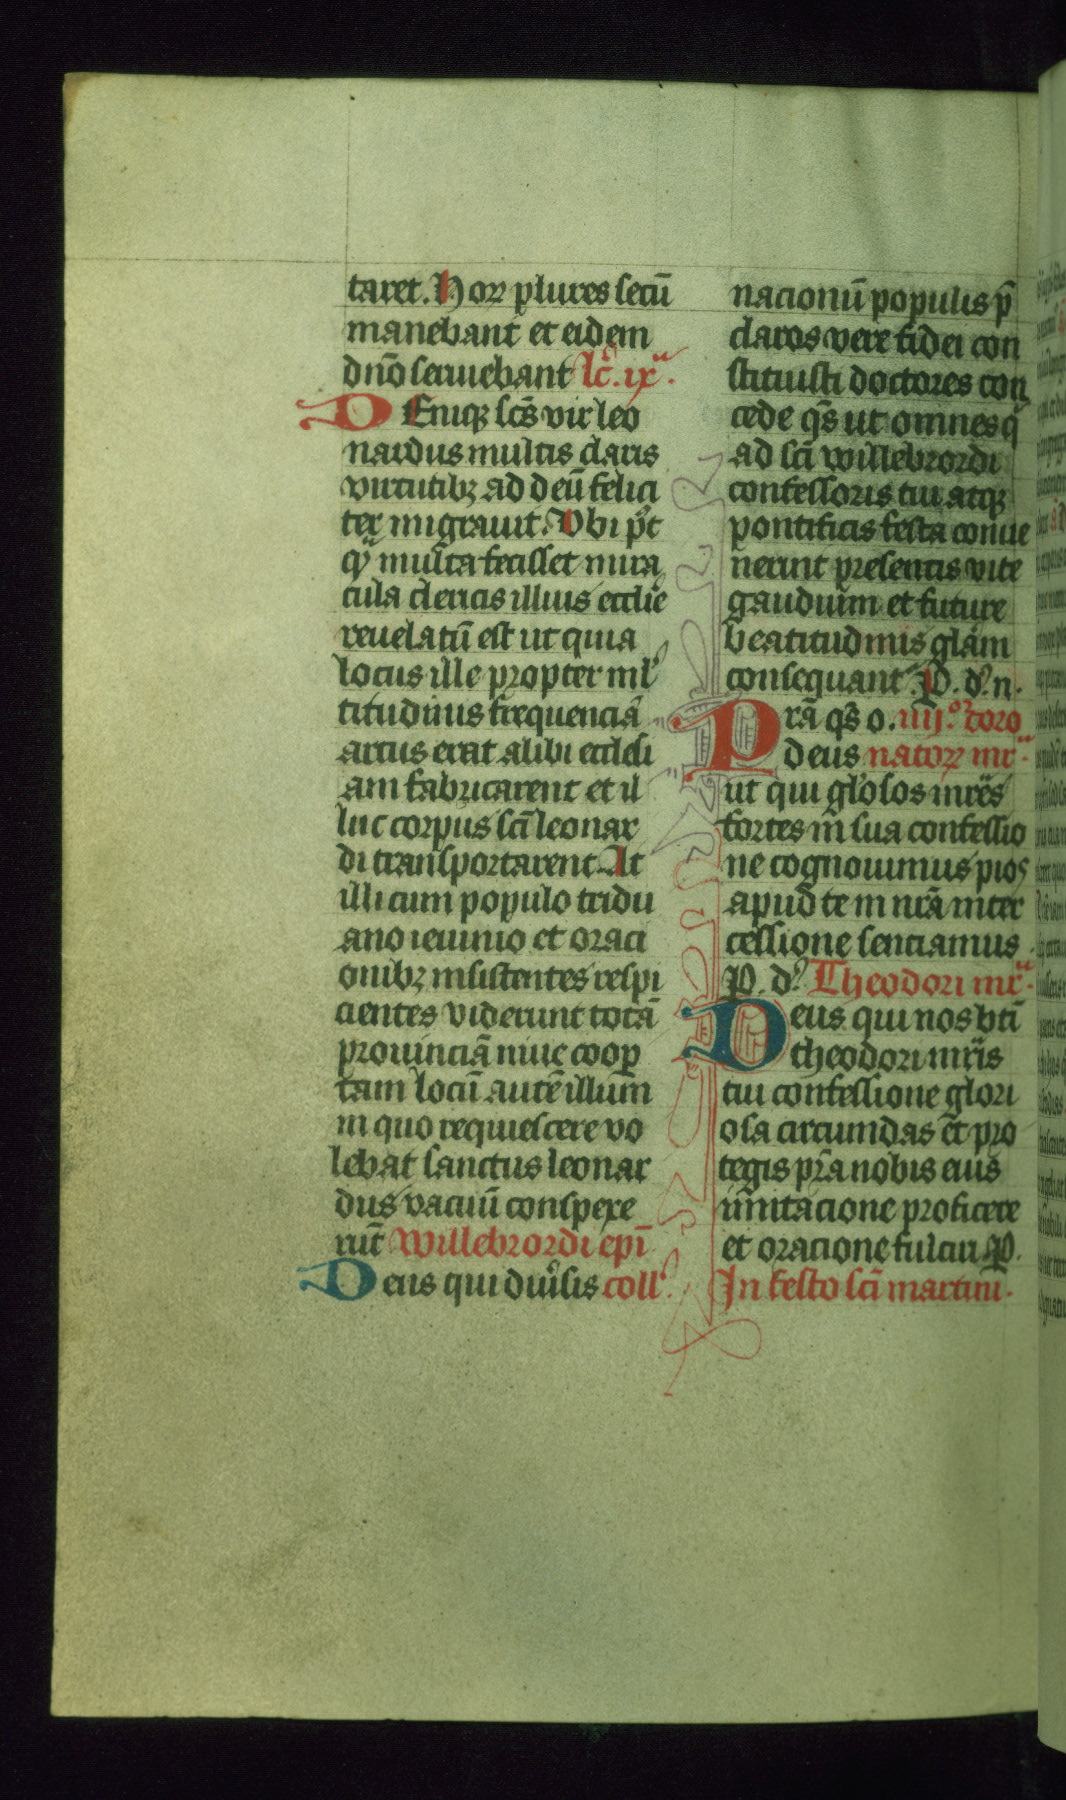 taret. Hoꝝ plures secū
manebant et eidem
dnō seruiebant lc̄. ixᵃ.
DEniqꝫ scs̄ vir leo
nardus multis claris
virtutibꝫ ad deū felici
ter migrauit. Vbi pꝰt
qͫ multa fecisset mira
cula clericis illius ecclīe
reuelatū est ut quia
locus ille propter ml̓
titudinis frequenciā
artus erat alibi ecclesi
am fabricarent et il
luc corpus scī leonar
di transportarent At
illi cum populo tridu
ano ieiunio et oraci
onibꝫ insistentes respi
cientes viderunt totā
prouinciā niue coop̄
tam locū autē illum
in quo requiescere vo
lebat sanctus leonar
dus vacuū conspexe
rūt Willebrordi ep̄i
Deus qui diuͥsis coll̓.
nacionū populis p̄
claros vere fidei con
stituisti doctores con
cede qs̄ ut omnes q̄
ad scī willebrordi
confessoris tui atqꝫ
pontificis festa conue
nerint presentis vite
gaudium et future
beatitudinis glām
consequant̓. P. dꝰ. n.
Prā qs̄ o. iiijᵒꝝ coro
deus natoꝝ mrͫ.
ut qui glōsos mrēs
fortes in sua confessio
ne cognouimus pios
apud te in nrā inter
cessione senciamus
P. dꝰ. Theodori mrͥˢ.
Deus qui nos bt̄i
theodori mrīs
tui confessione glori
osa circumdas et pro
tegis prā nobis eius
imitacione proficere
et oracione fulciri P.
In festo scī martini.